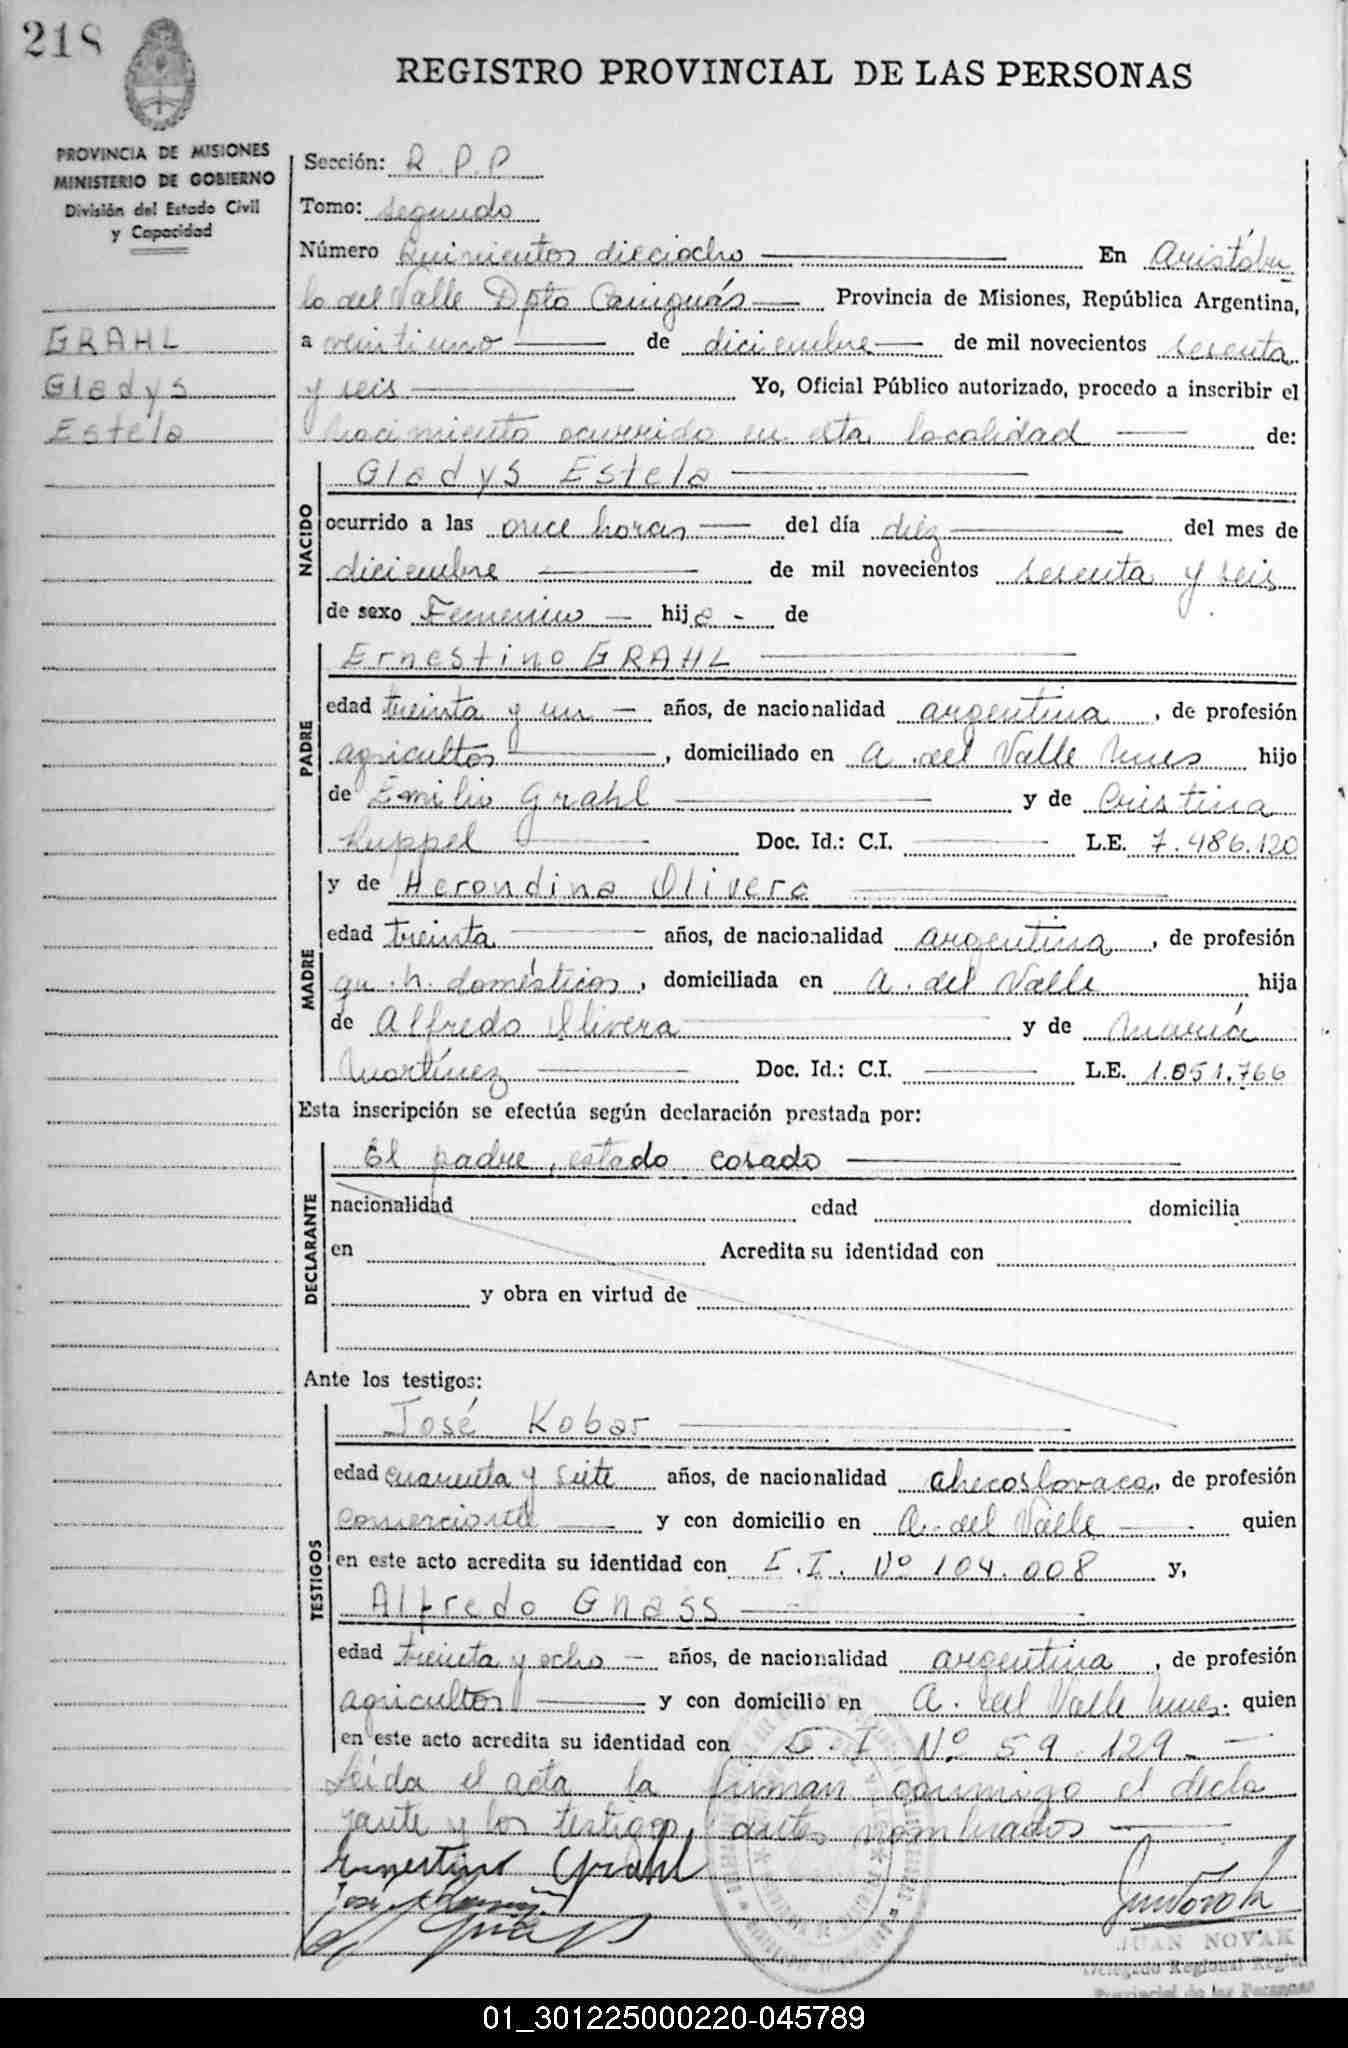 218
REGISTRO PROVINCIAL DE LAS PERSONAS
PROVINCIA DE MISIONES
MINISTERIO DE GOBIERNO
División del Estado Civil
y Capacidad
GRAHL
Gladys
Estela
Sección: R.P.P
Tomo: segundo
Número Quinientos dieciocho En Aristóbu
lo del Valle Dpto Cainguás Provincia de Misiones, República Argentina,
a veintiuno de diciembre de mil novecientos sesenta
y seis Yo, Oficial Público autorizado, procedo a inscribir el
Nacimiento ocurrido en esta localidad de:
NACIDO
Gladys Estela
ocurrido a las once horas del día diez del mes de
diciembre de mil novecientos sesenta y seis
de sexo Femenino hija - de
PADRE
Ernestino GRAHL
edad treinta y un años, de nacionalidad argentina, de profesión
agricultor, domiciliado en A. del Valle Mnes hijo
de Emilio Grahl y de Cristina
Ruppel Doc. Id.: C.I. L.E. 7.486.120
MADRE
y de Herondina Olivera
edad treinta años, de nacionalidad argentina, de profesión
qu. h. domésticos, domiciliada en A. del Valle hija
de Alfredo Olivera y de María
Martínez Doc. Id.: C.I. L.E. 1.051.766
Esta inscripción se efectúa según declaración prestada por:
DECLARANTE
El padre, estado casado
nacionalidad edad domicilia
en Acredita su identidad con
y obra en virtud de
Ante los testigos:
TESTIGOS
José Kobar
edad cuarenta y siete años, de nacionalidad checoslovaca, de profesión
comerciante y con domicilio en A. del Valle quien
en este acto acredita su identidad con C.I. Nº 104.008 y,
Alfredo Gnass
edad treinta y ocho años, de nacionalidad argentina, de profesión
agricultor y con domicilio en A. del Valle Mnes. quien
en este acto acredita su identidad con C.I Nº 59.129
Leída el acta la firman conmigo el decla
rante y los testigos antes nombrados
Ernestino Grahl
José
JUAN NOVAK
Delegado Regional Registro
Provincial de las Personas
01_301225000220-045789